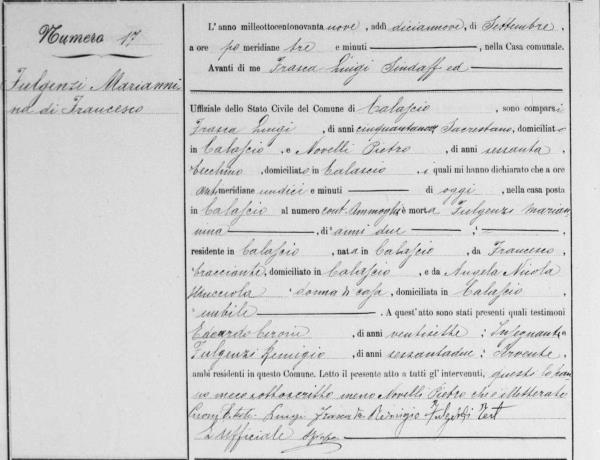 Numero 17
Fulgenzi Marianni
na di Francesco
L'anno milleottocentonovanta nove, addì diciannove, di Settembre,
a ore po meridiane tre e minuti, nella Casa comunale.
Avanti di me Frasca Luigi Sindaco ed
Uffiziale dello Stato Civile del Comune di Calascio, sono comparsi
Frasca Luigi, di anni cinquantanove Sacrestano, domiciliato
in Calascio, e Novelli Pietro, di anni sessanta,
Becchino, domiciliato in Calascio, i quali mi hanno dichiarato che a ore
antimeridiane undici e minuti di oggi, nella casa posta
in Calascio al numero è morta Fulgenzi Marian
nina, di anni due,
residente in Calascio, nata in Calascio, da Francesco,
bracciante, domiciliato in Calascio, e da Angela Nicola
donna di casa, domiciliata in Calascio,
nubile. A quest'atto sono stati presenti quali testimoni
Edoardo, di anni ventisette, Insegnante
Fulgenzi Remigio, di anni sessantadue,
ambi residenti in questo Comune. Letto il presente atto a tutti gl' intervenuti, questi lo han
no meco sottoscritto meno Novelli Pietro che è illetterato
Luigi Frasca Remigio Fulgenzi Test
L'Uffiziale